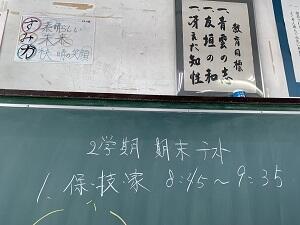 すみか
素晴らしい
未来
快晴の笑顔
教育目標
一、青雲の志
一、友垣の和
一、冴えた知性
2学期 期末テスト
1. 保・技・家 8:45～9:35